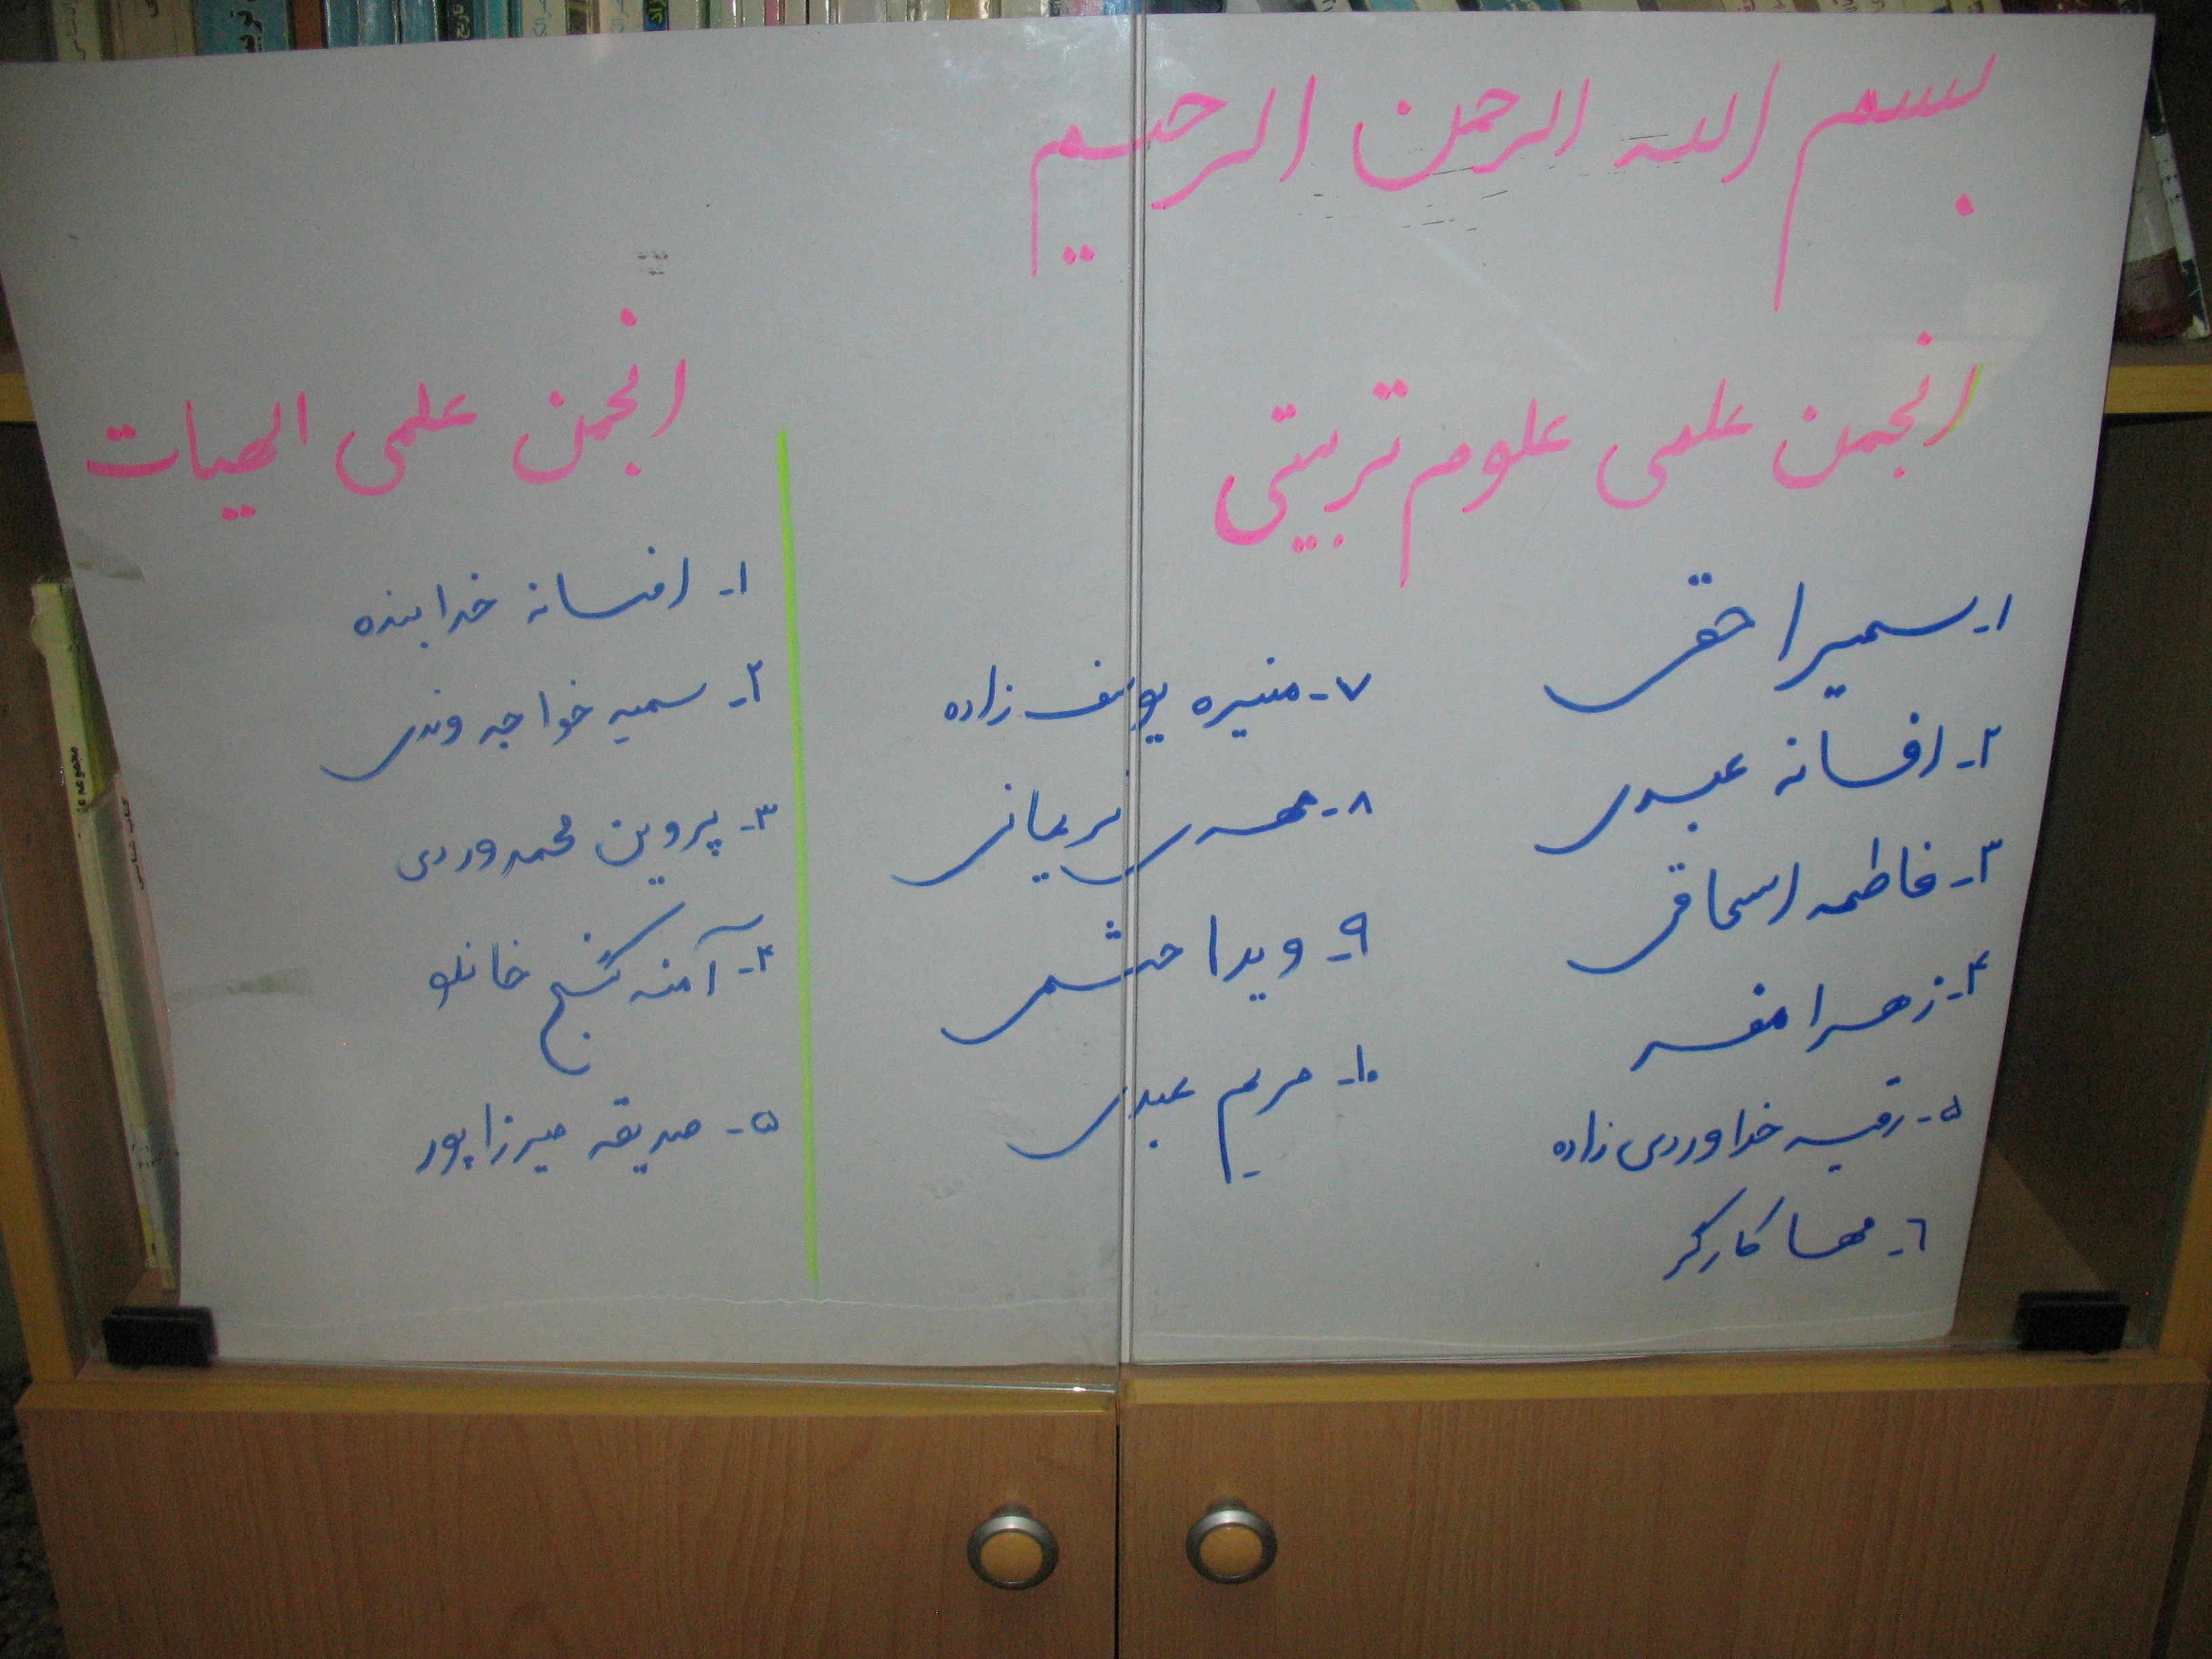 بسم الله الرحمن الرحیم
انجمن علمی علوم تربیتی
۱- سمیرا حقی
۲- افسانه عبدی
۳- فاطمه اسحاقی
۴- زهرا مفسر
۵- رقیه خداوردی زاده
۶- مهسا کارگر
۷- منیره یوسف زاده
۸- مهدی نریمانی
۹- ویدا حشمی
۱۰- مریم عبدی
انجمن علمی الهیات
۱- افسانه خدابنده
۲- سمیه خواجه وندی
۳- پروین محمدوردی
۴- آمنه گنج خانلو
۵- صدیقه میرزاپور